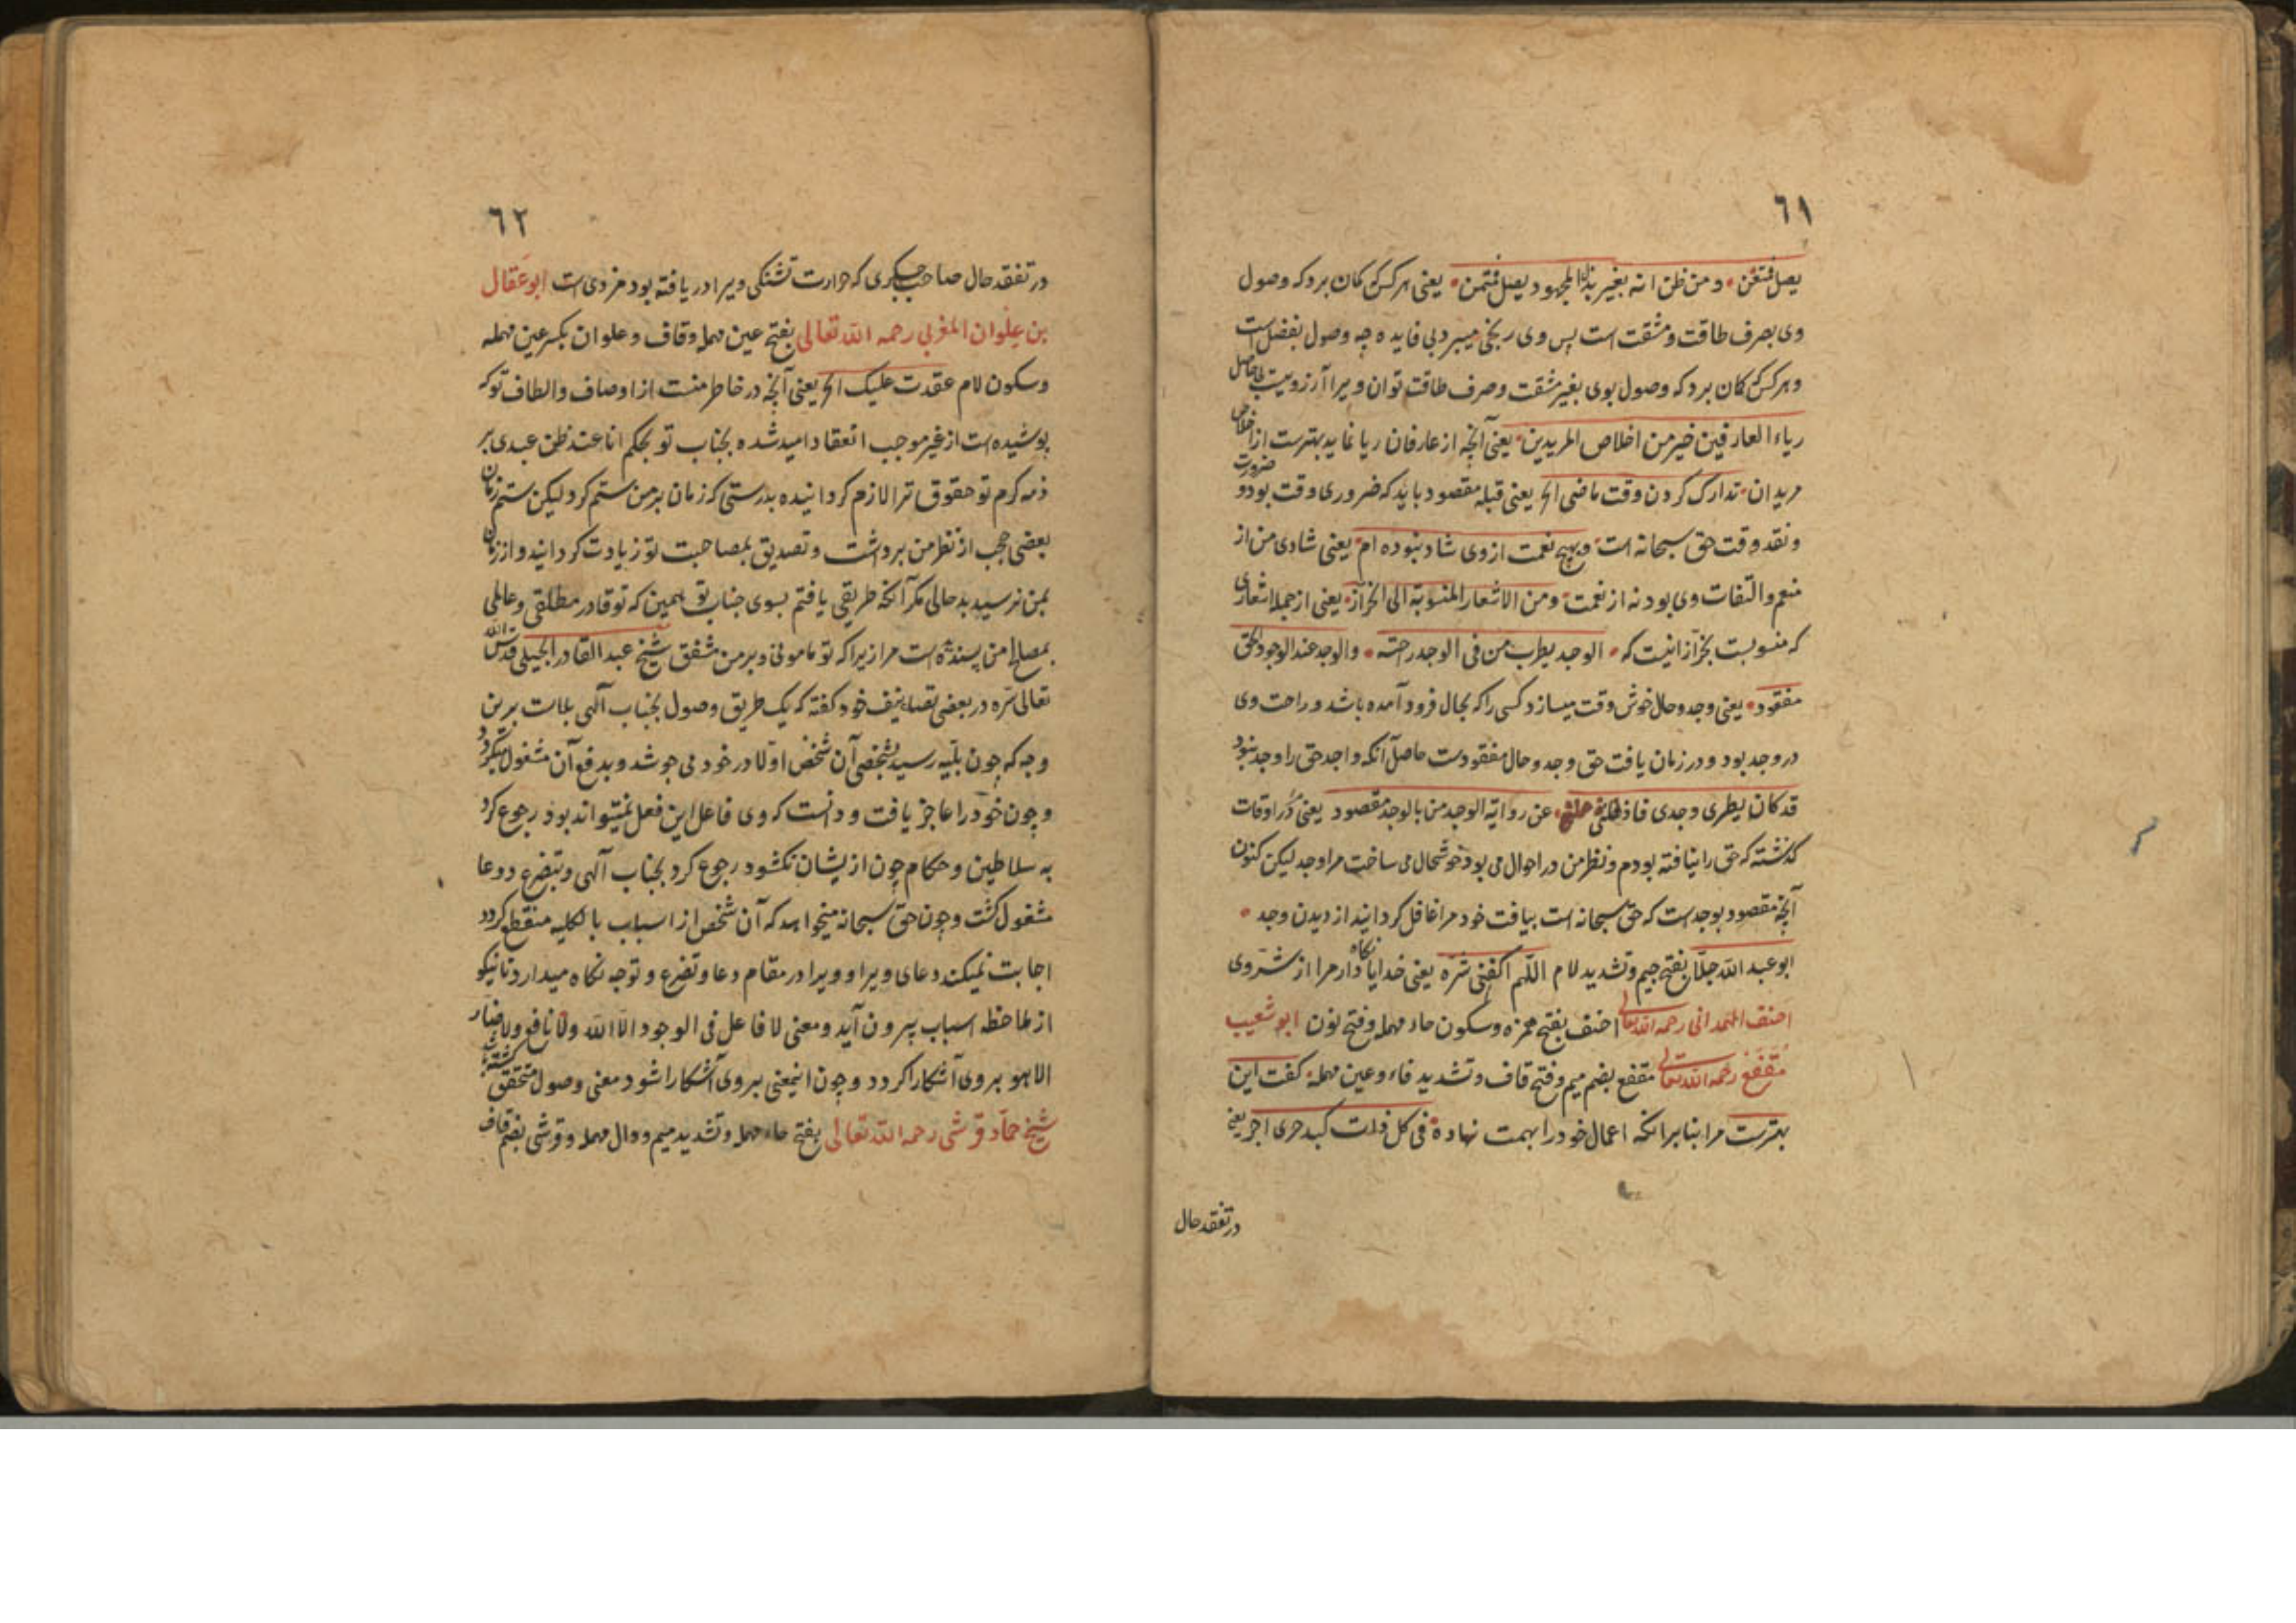 ٦١
یصل فمتعن و من ظن انه بغیر بذل المجهود یصل فمتمن یعنی هرکس که کمان برد که وصول
وی بصرف طاقت و مشقت است پس وی رنجی میبرد بی فایده چه وصول بفضل است
و هرکس که کمان برد که وصول بوی بغیر مشقت و صرف طاقت توان ویرا آرزوییست
ریاء العارفین خیر من اخلاص المریدین یعنی آنچه از عارفان ریا نماید بهترست از اخلاص
مریدان تدارک کردن وقت ماضی الخ یعنی قبله مقصود باید که ضروری وقت بود و
و نقد وقت حق سبحانه است و بهیچ نعمت از وی شاد نبوده ام یعنی شادی من از
منعم و التفات وی بود نه از نعمت و من الاشعار المنسوبة الی الخراز یعنی از جمله اشعاری
که منسوبست بخراز اینست که الوجد یطرب من فی الوجد راحته والوجد عند الوجود الحق
مفقود یعنی وجد و حال خوش وقت میسازد کسی را که بحال فرود آمده باشد و راحت وی
در وجد بود و در زمان یافت حق وجد و حال مفقودست حاصل آنکه واجد حق را وجد نبود
قد کان یطربی وجدی فاذهلنی عن رؤیة الوجد من بالوجد مقصود یعنی در اوقات
کذشته که حق را نیافته بودم و نظر من در احوال می بود خوشحال می ساخت مرا وجد لیکن کنون
آنچه مقصود بوجد است که حق سبحانه است بیافت خود مرا غافل کردانید از دیدن وجد
ابو عبد الله جلّا بفتح جیم و تشدید لام اللّهم اکفنی شرّه یعنی خدایا نکاه دار مرا از شرّ وی
احنف الهمدانی رحمه الله تعالی احنف بفتح همزه و سکون حاء مهمله و فتح نون ابو شعیب
مُقَفَّع رحمه الله تعالی مقفع بضم میم و فتح قاف و تشدید فاء و عین مهمله کفت این
بهترست مرا بنا برانکه اعمال خود را بهمت نهاده فی کل ذات کبد حری اجر یعنی
در تفقد حال
٦٢
در تفقد حال صاحب جکری که حرارت تشنکی ویرا دریافته بود مزدی است ابو عَقال
بن عِلوان المغربی رحمه الله تعالی بفتح عین مهمله و قاف و علوان بکسر عین مهمله
و سکون لام عقدت علیک الخ یعنی آنچه در خاطر منست از اوصاف و الطاف تو که
پوشیده است از غیر موجب انعقاد امید شده بجناب تو بحکم انا عند ظن عبدی بر
ذمه کرم تو حقوق ترا لازم کردانیده بدرستی که زمان بر من ستم کرد لیکن ستم زمان
بعضی حجب از نظر من برداشت و تصدیق بمصاحبت تو زیادت کردانید و از زمان
بمن نرسید بدحالی مکر آنکه طریقی یافتم بسوی جناب تو همین که تو قادر مطلقی و عالمی
بمصالح من پسنده است مرا زیرا که تو مامونی و بر من مشفق شیخ عبد القادر الجیلی قدس الله
تعالی سرّه در بعضی تصانیف خود کفته که یک طریق وصول بجناب آلهی بلاست برین
وجه که چون بلیه رسید بشخصی آن شخص اوّلا در خود می جوشد و بدفع آن مشغول میکردد
و چون خود را عاجز یافت و دانست که وی فاعل این فعل نمیتواند بود رجوع کرد
به سلاطین و حکام چون ازیشان نکشود رجوع کرد بجناب آلهی و بتضرع و دعا
مشغول کشت و چون حق سبحانه میخواهد که آن شخص از اسباب بالکلیه منقطع کردد
اجابت نمیکند دعای ویرا و ویرا در مقام دعا و تضرع و توجه نکاه میدارد تا نیکو
از ملاحظه اسباب بیرون آید و معنی لا فاعل فی الوجود الّا الله ولا نافع ولا ضار
الا هو بروی آشکارا کردد و چون اینمعنی بروی آشکارا شود معنی وصول متحقق
شیخ حمّاد قرشی رحمه الله تعالی بفتح حاء مهمله و تشدید میم و دال مهمله و قرشی بضم قاف